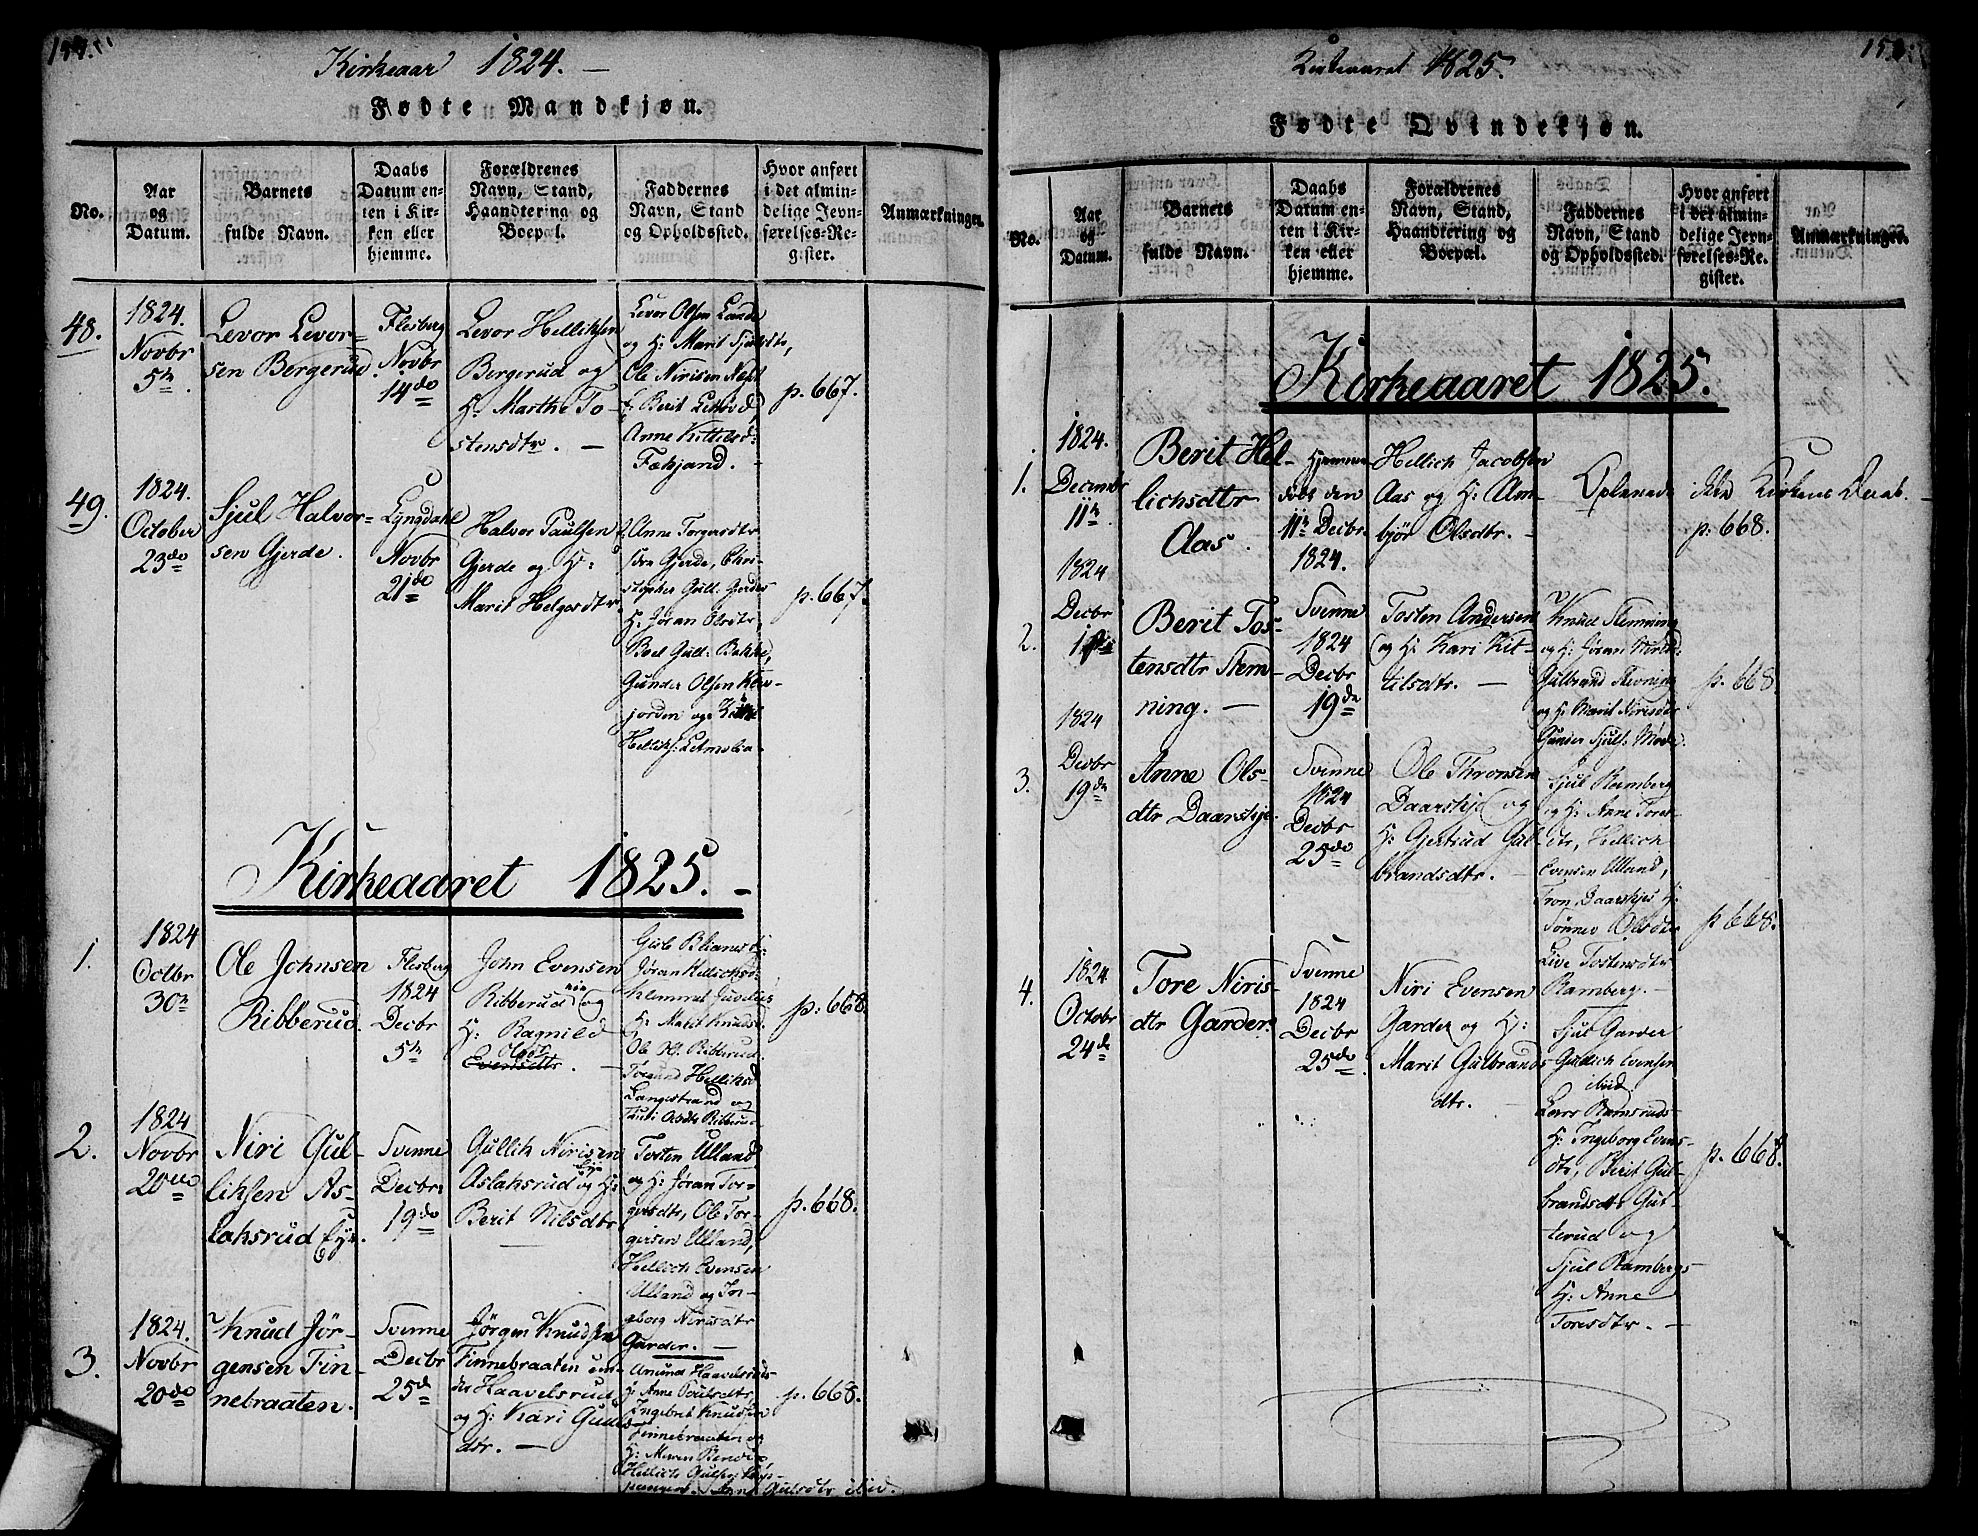 Kirkeaar 1824. —
Fødte Mandkjøn.
No.
Aar
og
Datum.
Barnets
fulde Navn.
Daabs
Datum en-
ten i Kir-
ken eller
hjemme.
Forældrenes
Navn, Stand,
Haandtering og
Boepæl.
Faddernes
Navn, Stand
og Opholdssted.
Hvor anført
i det almin-
delige Jevn-
førelses-Re-
gister.
Anmærkninger.
48.
1824.
Novbr
5te
Levor Levor-
sen Bergerud
Flesberg
Novbr
14de
Levor Helliksen
Bergerud og
H: Marthe To-
stensdtr. —
Levor Olsen Lande
og H: Marit
Ole Nirisen
Berit
Anne Kittilsd:
p. 667.
49.
1824.
October
23de
Sjul Halvor-
sen Gjerde.
Lyngdahl
Novbr
21de
Halvor Paulsen
Gjerde og H:
Marit Helgesdtr.
Anne Torgersdtr
Gjerde, Chri-
stopher Gull. Gjerde
H: Jøran Olsdtr,
Boel Gull: Bakke,
Gunder Olsen
jorden og
p. 667.
Kirkeaaret 1825. —
1.
1824
Octbr
30te
Ole Johnsen
Ribberud.
Flesberg
1824
Decbr
5te
John Evensen
Ribberud og
H: Ragnild
Evensdtr. —
Jøran Helliksd:
H: Marit Knudsd.
Ole Ribberud.
Helliksd
Langestrand og
Ribberud
p: 668.
2.
1824
Novbr
20de
Niri Gul-
liksen As-
laksrud Eye.
Svenne
Decbr:
19de
Gullik Nirisen
Aslaksrud Eye og H:
Berit Nilsdtr
Tosten Ulland
og H: Jøran Tor-
gersdtr, Ole Tor-
gersen Ulland,
Hellich Evensen
Ulland og Tor-
geborg Nirisdtr
Garder. —
p. 668.
3.
1824.
Novbr
20de
Knud Jør-
gensen Fin-
nebraaten.
Svenne
Decbr
25de
Jørgen Knudsen
Finnebraaten un-
der Haavelsrud
og H: Kari Guuls-
dtr. —
Amund Haavelsrud
H: Anne Poulsdtr,
Ingebret Knudsen
Finnebraaten og
H: Maren
p. 668.
Kirkeaaret 1825.
Fødte Qvindekjøn.
No.
Aar
og
Datum.
Barnets
fulde Navn.
Daabs
Datum en-
ten i Kir-
ken eller
hjemme.
Forældrenes
Navn, Stand,
Haandtering og
Boepæl.
Faddernes
Navn, Stand
og Opholdssted.
Hvor anført
i det almin-
delige Jevn-
førelses-Re-
gister.
Anmærkninger.
Kirkeaaret 1825.
1.
1824.
Decembr
11te
Berit Hel-
lichsdtr
Aas.
Hjemme
døbt den
11te Decbr
1824.
Hellich Jacobsen
Aas og H: Am-
bjør Olsdtr. —
Oplevede ikke Kirkens Daab. —
p. 668.
2.
1824
Decbr
Berit Tos-
tensdtr Stem-
ning. —
Svenne
1824
Decbr
19de
Tosten Andersen
og H: Kari Kit-
tilsdtr. —
Knud Stemning
og H: Jøran Nirisd:
Gulbrand Stevning
og H: Marit Nirisdtr
Gunder Sjuls. Mode.
p. 668
3.
1824
Decbr
19de
Anne Ols-
dtr Daarstye.
Svenne
1824
Decbr
25de
Ole Thronsen
Daarstye og
H: Gjertrud Gul-
brandsdtr. —
Sjul Ramberg
og H: Anne Tores-
dtr, Hellich
Evensen Ulland,
Tron Daarstyes H:
Sønnev Olsdtr
Live Tostensdtr
Ramberg. —
p 668.
4.
1824
Octobr
24de
Tore Niris-
dtr Garder.
Svenne
1824
Decbr
25de
Niri Evensen
Garder og H:
Marit Gulbrands-
dtr. —
Sjul Garder
Gullich Evensen
ibid
Lars Ramsruds-
H: Ingeborg Evens-
dtr, Berit Gul-
brandsdtr Gut-
terud og
Sjul Rambergs
H: Anne
Toresdtr. —
p. 668.